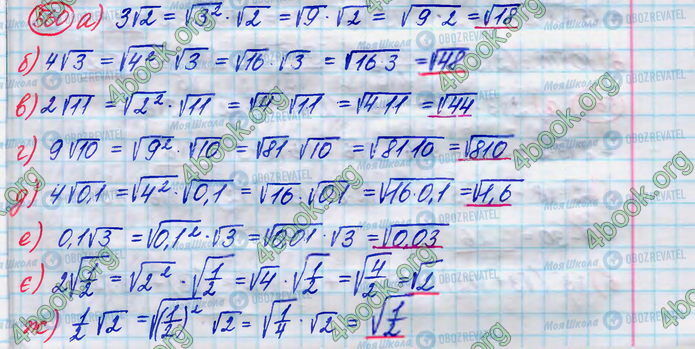 а) 3√2 = √3² · √2 = √9 · √2 = √9·2 = √18
б) 4√3 = √4² · √3 = √16 · √3 = √16 3 = √48
в) 2√11 = √2² · √11 = √4 √11 = √4 11 = √44
г) 9√10 = √9² · √10 = √81 √10 = √81 10 = √810
д) 4√0,1 = √4² · √0,1 = √16 √0,1 = √16·0,1 = √1,6
е) 0,1√3 = √0,1² · √3 = √0,01 · √3 = √0,03
є) 2√1/2 = √2² · √1/2 = √4 · √1/2 = √4/2 = √2
ж) 1/2 √2 = √(1/2)² √2 = √1/4 · √2 = √1/2